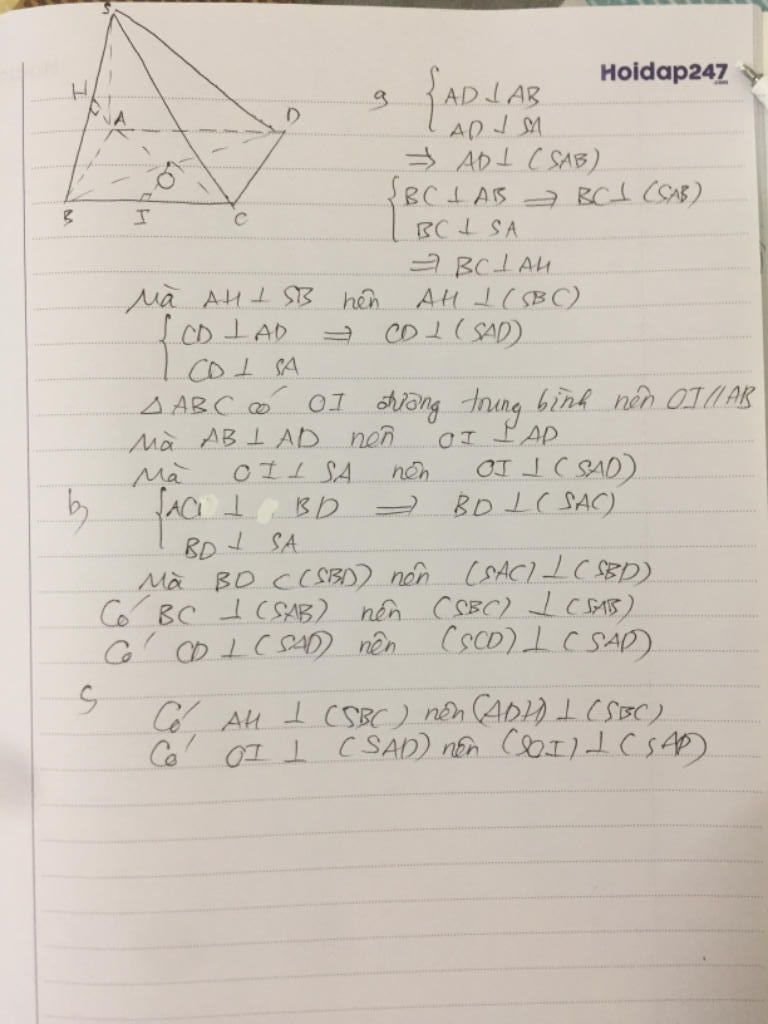 Hoidap247
.com
S
H
A
D
O
B
I
C
a, { AD ⊥ AB
AD ⊥ SA
⇒ AD ⊥ (SAB)
{ BC ⊥ AB ⇒ BC ⊥ (SAB)
BC ⊥ SA
⇒ BC ⊥ AH
Mà AH ⊥ SB nên AH ⊥ (SBC)
{ CD ⊥ AD ⇒ CD ⊥ (SAD)
CD ⊥ SA
△ABC có OI đường trung bình nên OI // AB
Mà AB ⊥ AD nên OI ⊥ AD
Mà OI ⊥ SA nên OI ⊥ (SAD)
b, { AC ⊥ BD ⇒ BD ⊥ (SAC)
BD ⊥ SA
Mà BD ⊂ (SBD) nên (SAC) ⊥ (SBD)
Có BC ⊥ (SAB) nên (SBC) ⊥ (SAB)
Có CD ⊥ (SAD) nên (SCD) ⊥ (SAD)
c,
Có AH ⊥ (SBC) nên (ADH) ⊥ (SBC)
Có OI ⊥ (SAD) nên (SOI) ⊥ (SAD)